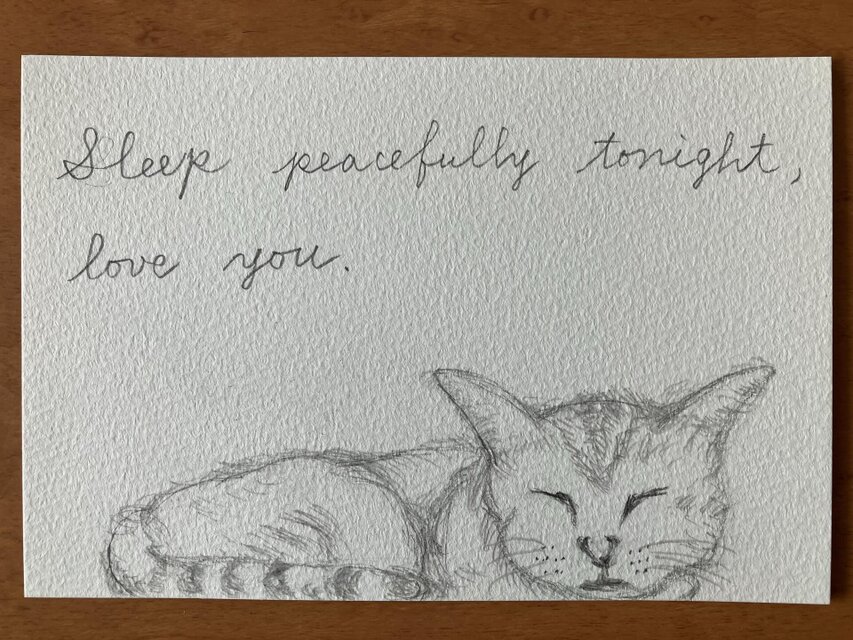 Sleep peacefully tonight,
love you.